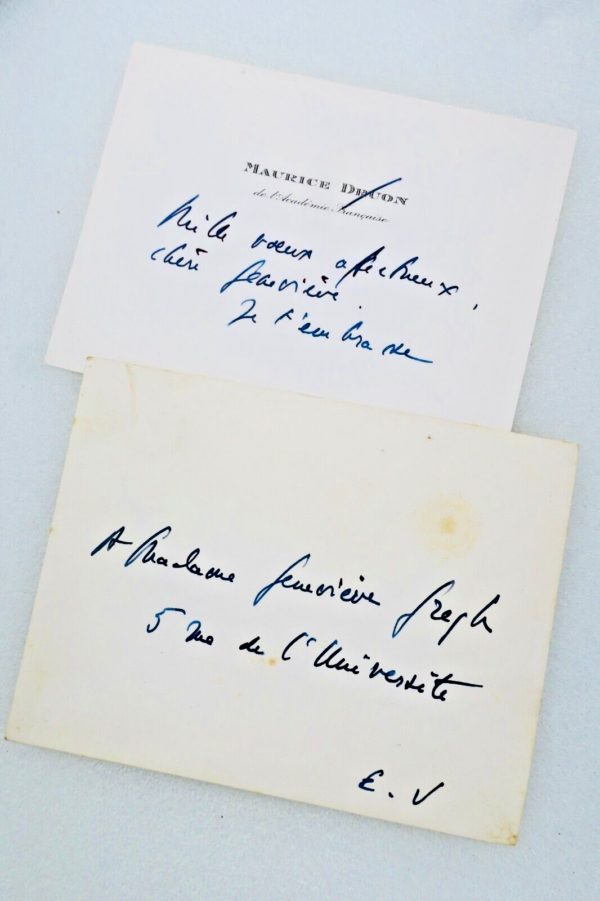 MAURICE DRUON
de l'Académie Française
Mille vœux affectueux,
chère Geneviève.
Je t'embrasse
A Madame Geneviève Gregh
5 rue de l'Université
E.V